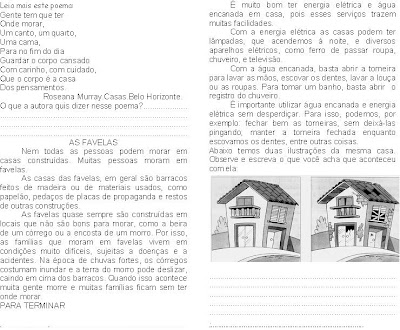 Leia mais este poema
Gente tem que ter
Onde morar,
Um canto, um quarto,
Uma cama,
Para no fim do dia
Guardar o corpo cansado
Com carinho, com cuidado,
Que o corpo é a casa
Dos pensamentos.
Roseana Murray Casas Belo Horizonte.
O que a autora quis dizer nesse poema?
AS FAVELAS
Nem todas as pessoas podem morar em
casas construídas. Muitas pessoas moram em
favelas.
As casas das favelas, em geral são barracos
feitos de madeira ou de materiais usados, como
papelão, pedaços de placas de propaganda e restos
de outras construções.
As favelas quase sempre são construídas em
locais que não são bons para morar, como a beira
de um córrego ou a encosta de um morro. Por isso,
as famílias que moram em favelas vivem em
condições muito difíceis, sujeitas a doenças e a
acidentes. Na época de chuvas fortes, os córregos
costumam inundar e a terra do morro pode deslizar,
caindo em cima dos barracos. Quando isso acontece
muita gente morre e muitas famílias ficam sem ter
onde morar.
PARA TERMINAR
É muito bom ter energia elétrica e água
encanada em casa, pois esses serviços trazem
muitas facilidades.
Com a energia elétrica as casas podem ter
lâmpadas, que acendemos à noite, e diversos
aparelhos elétricos, como ferro de passar roupa,
chuveiro, e televisão.
Com a água encanada, basta abrir a torneira
para lavar as mãos, escovar os dentes, lavar a louça
ou as roupas. Para tomar um banho, basta abrir o
registro do chuveiro.
É importante utilizar água encanada e energia
elétrica sem desperdiçar. Para isso, podemos, por
exemplo: fechar bem as torneiras, sem deixá-las
pingando; manter a torneira fechada enquanto
escovamos os dentes, entre outras coisas.
Abaixo temos duas ilustrações da mesma casa.
Observe e escreva o que você acha que aconteceu
com ela: